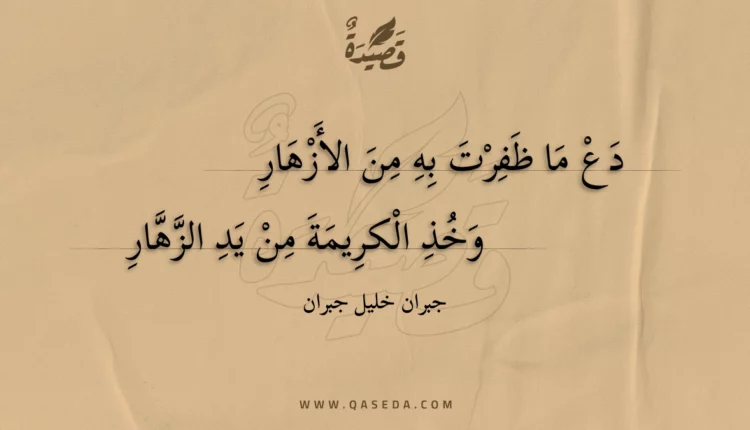 قَصِيْدَةٌ
دَعْ مَا ظَفِرْتَ بِهِ مِنَ الأَزْهَارِ
وَخُذِ الْكرِيمَةَ مِنْ يَدِ الزَّهَّارِ
جبران خليل جبران
WWW.QASEDA.COM